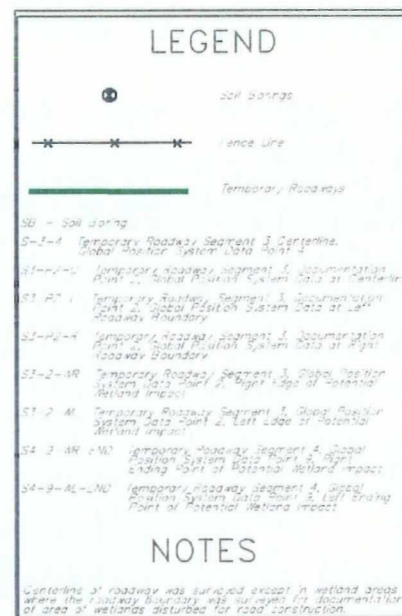 LEGEND
Soil Borings
Fence Line
Temporary Roadways
SB - Soil Boring
S-3-4 Temporary Roadway Segment 3, Centerline,
Global Position System Data Point 4
Temporary Roadway Segment 3, Documentation
Point 2, Global Position System Data at Centerline
Temporary Roadway Segment 3, Documentation
Point 2, Global Position System Data at Left
Roadway Boundary
S3-P2-R Temporary Roadway Segment 3, Documentation
Point 2, Global Position System Data at Right
Roadway Boundary
S3-2-WR Temporary Roadway Segment 3, Global Position
System Data Point 2, Right Edge of Potential
Wetland Impact
Temporary Roadway Segment 3, Global Position
System Data Point 2, Left Edge of Potential
Wetland Impact
Temporary Roadway Segment 4, Global
Position System Data Point Right
Ending Point of Potential Wetland Impact
S4-9-WL-END Temporary Roadway Segment 4, Global
Position System Data Point Left Ending
Point of Potential Wetland Impact
NOTES
Centerline of roadway was surveyed except in wetland areas
where the roadway boundary was surveyed for documentation
of area of wetlands disturbed for road construction.